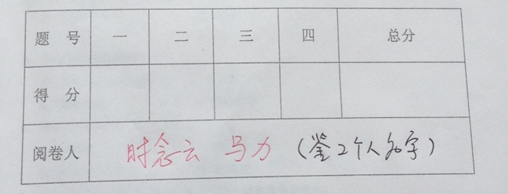 题 号 一 二 三 四 总分
得 分
阅卷人 时念云 马力 (签2个人名字)